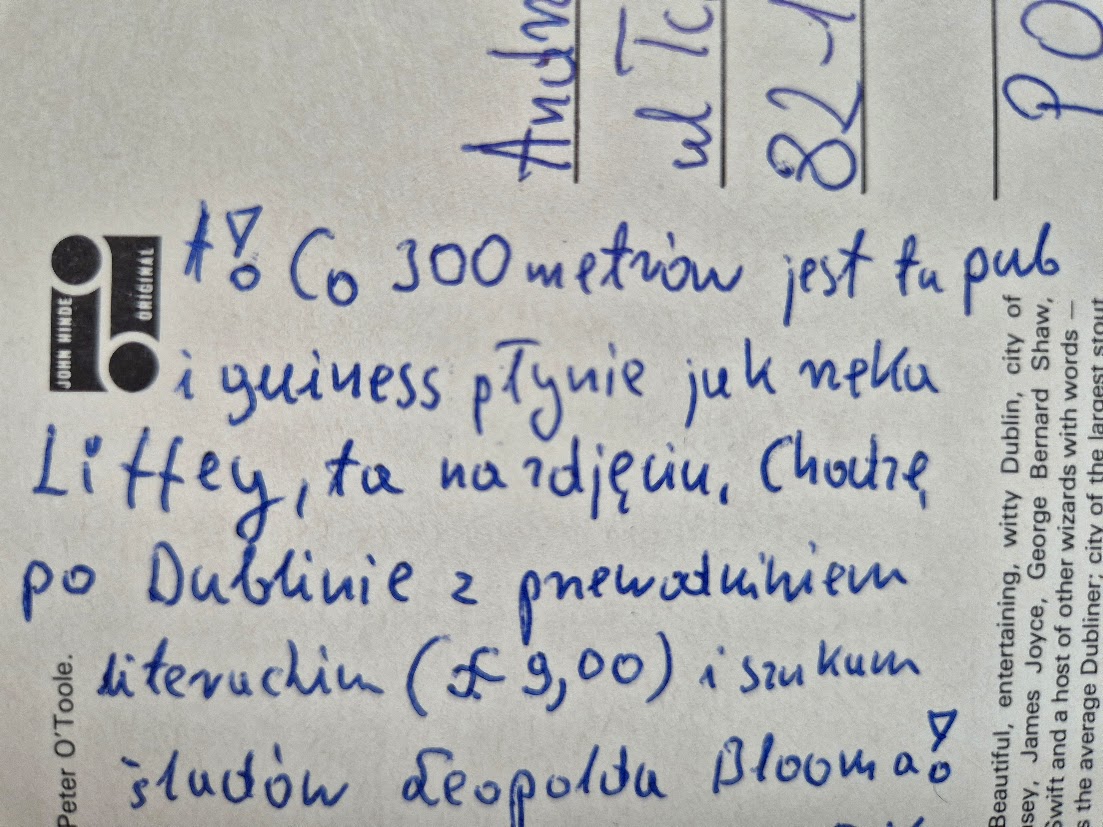 A! Co 300 metrów jest tu pub
i guiness płynie jak rzeka
Liffey, ta na zdjęciu. Chodzę
po Dublinie z przewodnikiem
literackim (£ 9,00) i szukam
śladów Leopolda Blooma!
ul
82-1
JOHN HINDE
ORIGINAL
Peter O'Toole.
Beautiful, entertaining, witty Dublin, city of
James Joyce, George Bernard Shaw,
Swift and a host of other wizards with words —
the average Dubliner; city of the largest stout